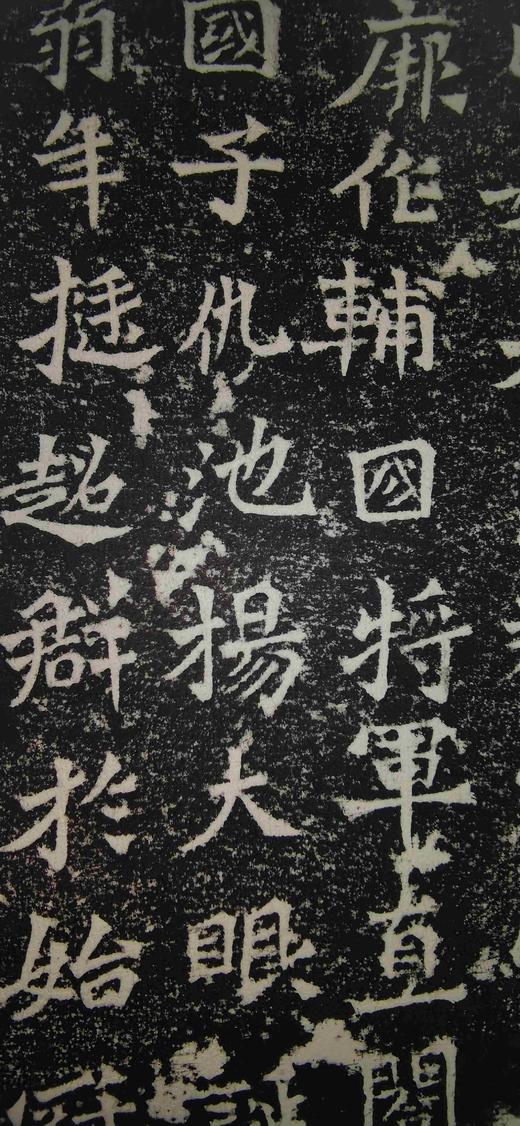 厥作輔國將軍直閤
國子仇池揚大眼
弱年挺超群於始